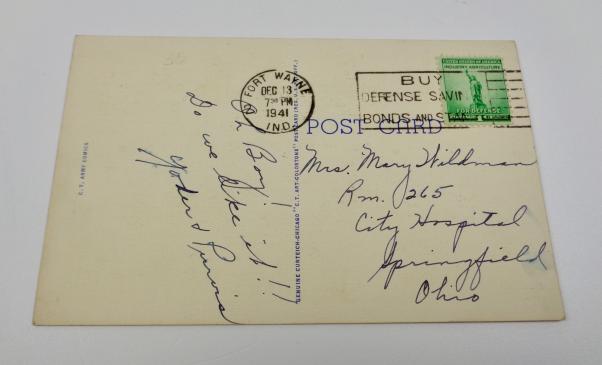 C. T. ARMY COMICS
Oh Boy!
Do we like it!!
Yoder & Purvis
GENUINE CURTEICH-CHICAGO "C. T. ART-COLORTONE" POST CARD (REG. U.S. PAT. OFF.)
FORT WAYNE
DEC 13
7 30 PM
1941
IND.
BUY
DEFENSE SAVIN
BONDS AND S
UNITED STATES OF AMERICA
INDUSTRY AGRICULTURE
FOR DEFENSE
POST CARD
Mrs. Mary Wildman
Rm. 265
City Hospital
Springfield
Ohio